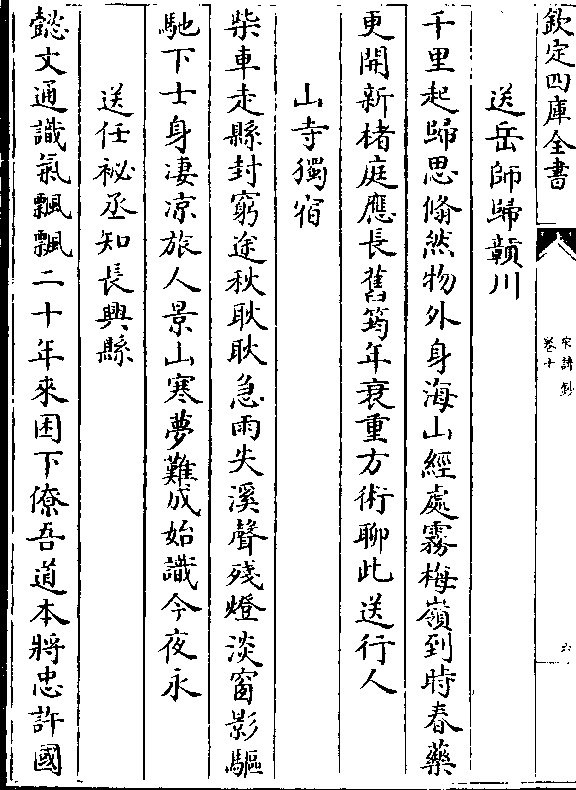 欽定四庫全書
宋詩鈔
卷十
六
送岳師歸贛川
千里起歸思翛然物外身海山經處霧梅嶺到時春藥
更開新楮庭應長舊筠年衰重方術聊此送行人
山寺獨宿
柴車走縣封窮途秋耿耿急雨失溪聲殘燈淡窗影驅
馳下士身凄凉旅人景山寒夢難成始識今夜永
送任祕丞知長興縣
懿文通識氣飄飄二十年來困下僚吾道本將忠許國